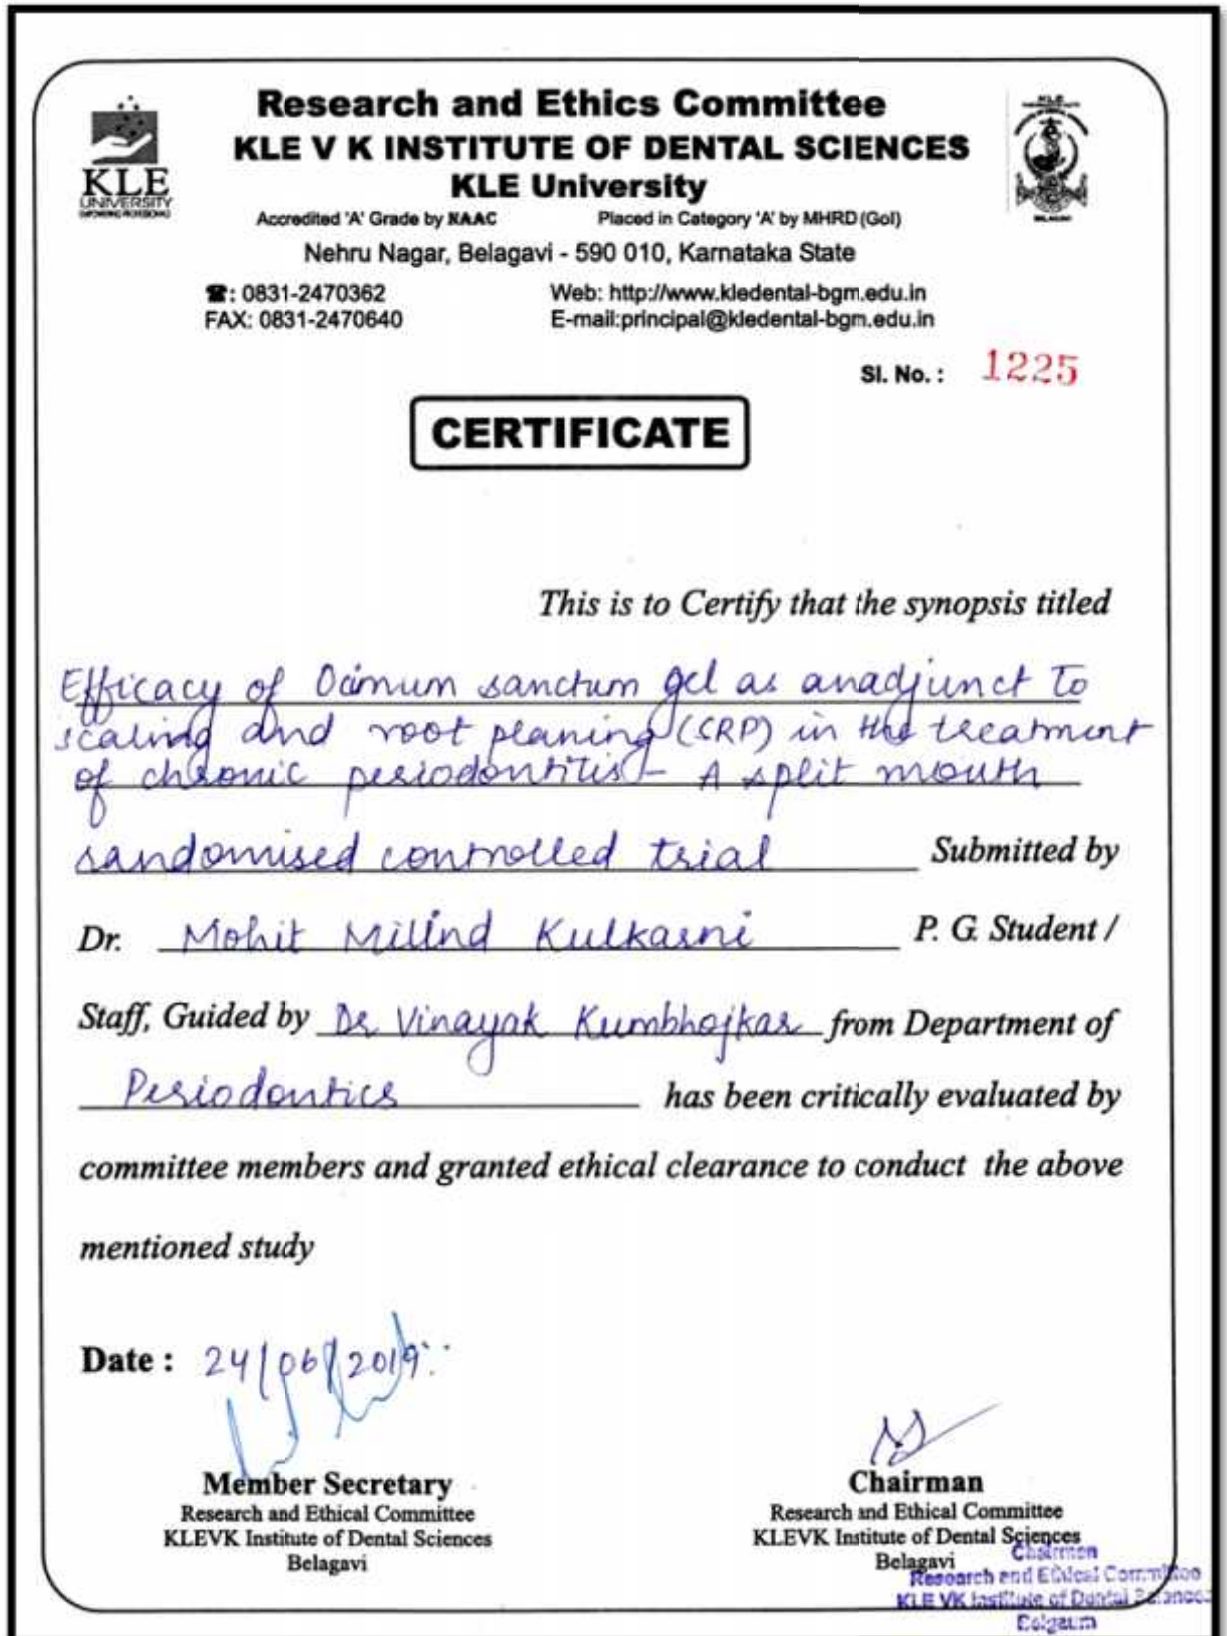 Research and Ethics Committee
KLE V K INSTITUTE OF DENTAL SCIENCES
KLE University
KLE
UNIVERSITY
EMPOWERING PROFESSIONALS
KLE
BELAGAVI
Accredited 'A' Grade by NAAC Placed in Category 'A' by MHRD (GoI)
Nehru Nagar, Belagavi - 590 010, Karnataka State
☎: 0831-2470362 Web: http://www.kledental-bgm.edu.in
FAX: 0831-2470640 E-mail:principal@kledental-bgm.edu.in
Sl. No. : 1225
CERTIFICATE
This is to Certify that the synopsis titled
Efficacy of Ocimum sanctum gel as anadjunct to
scaling and root planing (SRP) in the treatment
of chronic periodontitis - A split mouth
randomised controlled trial Submitted by
Dr. Mohit Milind Kulkarni P. G. Student /
Staff, Guided by Dr Vinayak Kumbhojkar from Department of
Periodontics has been critically evaluated by
committee members and granted ethical clearance to conduct the above
mentioned study
Date : 24/06/2019
Member Secretary
Research and Ethical Committee
KLEVK Institute of Dental Sciences
Belagavi
Chairman
Research and Ethical Committee
KLEVK Institute of Dental Sciences
Belagavi
Chairman
Research and Ethical Committee
KLE VK Institute of Dental Sciences
Belgaum